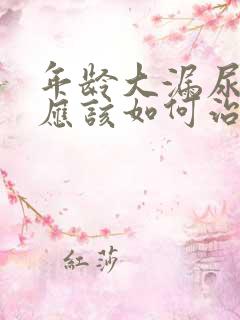 年龄大漏尿
应该如何治
红莎